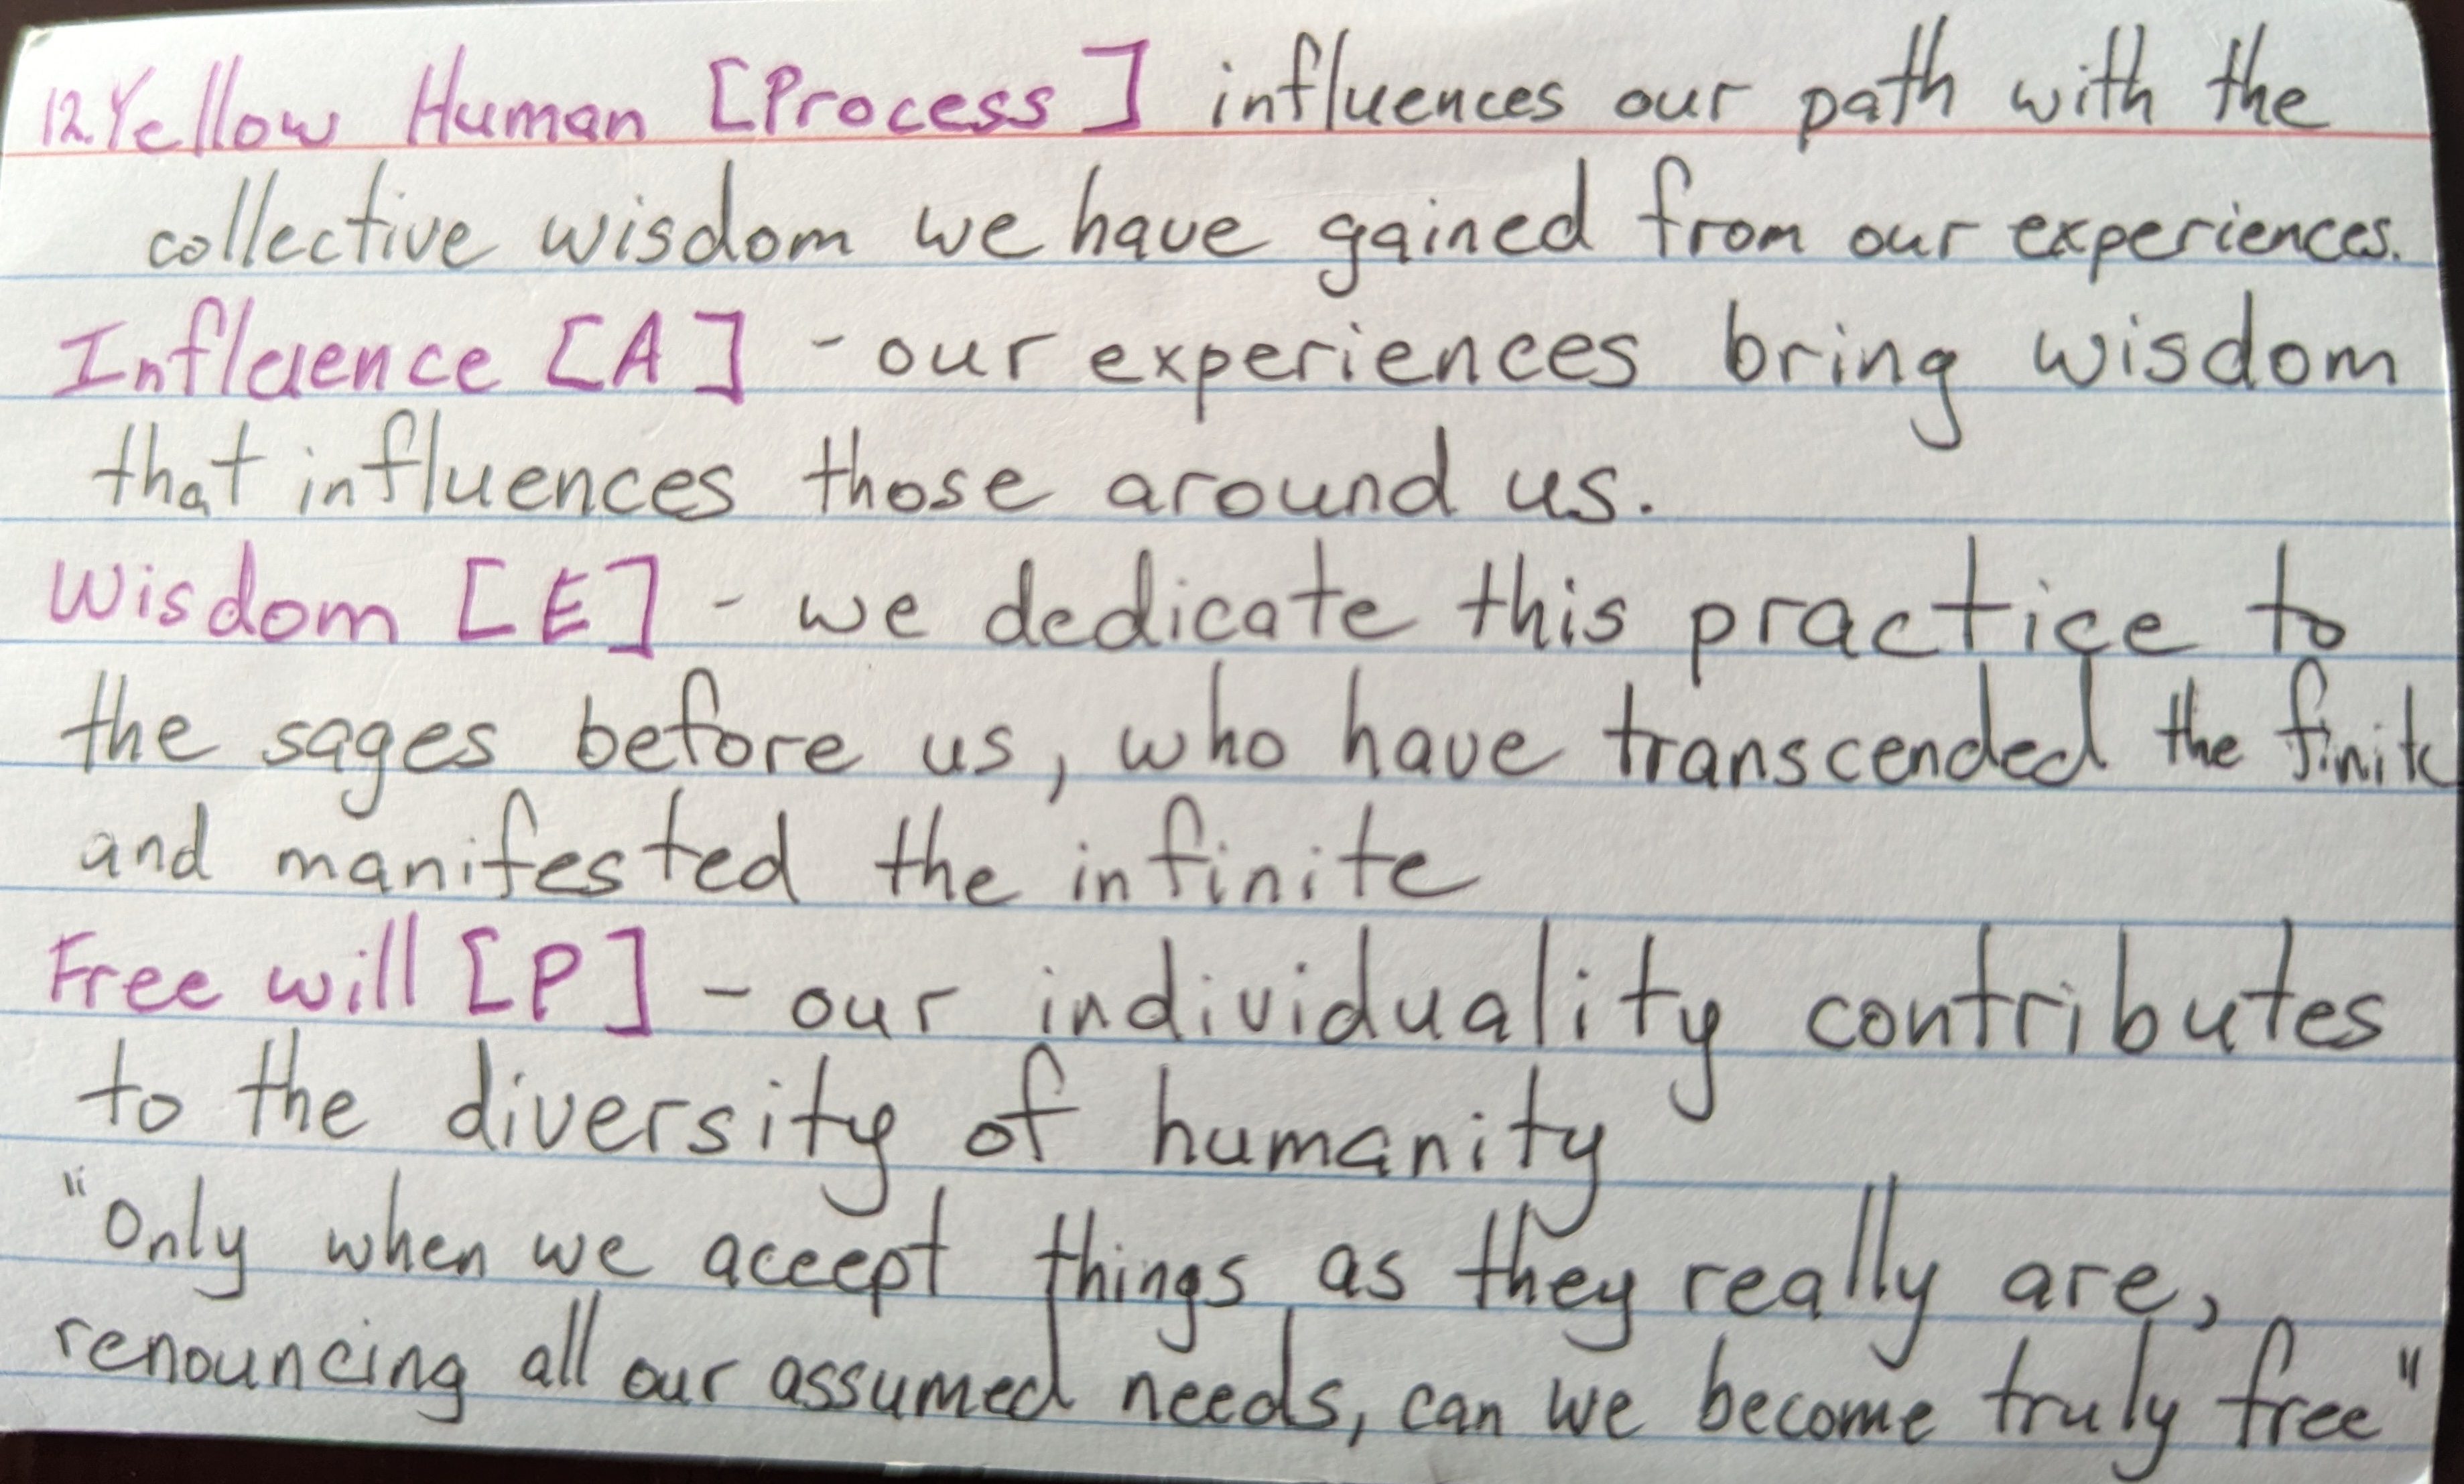 12. Yellow Human [Process] influences our path with the
collective wisdom we have gained from our experiences.
Influence [A] - our experiences bring wisdom
that influences those around us.
Wisdom [E] - we dedicate this practice to
the sages before us, who have transcended the finite
and manifested the infinite
Free will [P] - our individuality contributes
to the diversity of humanity
"Only when we accept things as they really are,
renouncing all our assumed needs, can we become truly free"